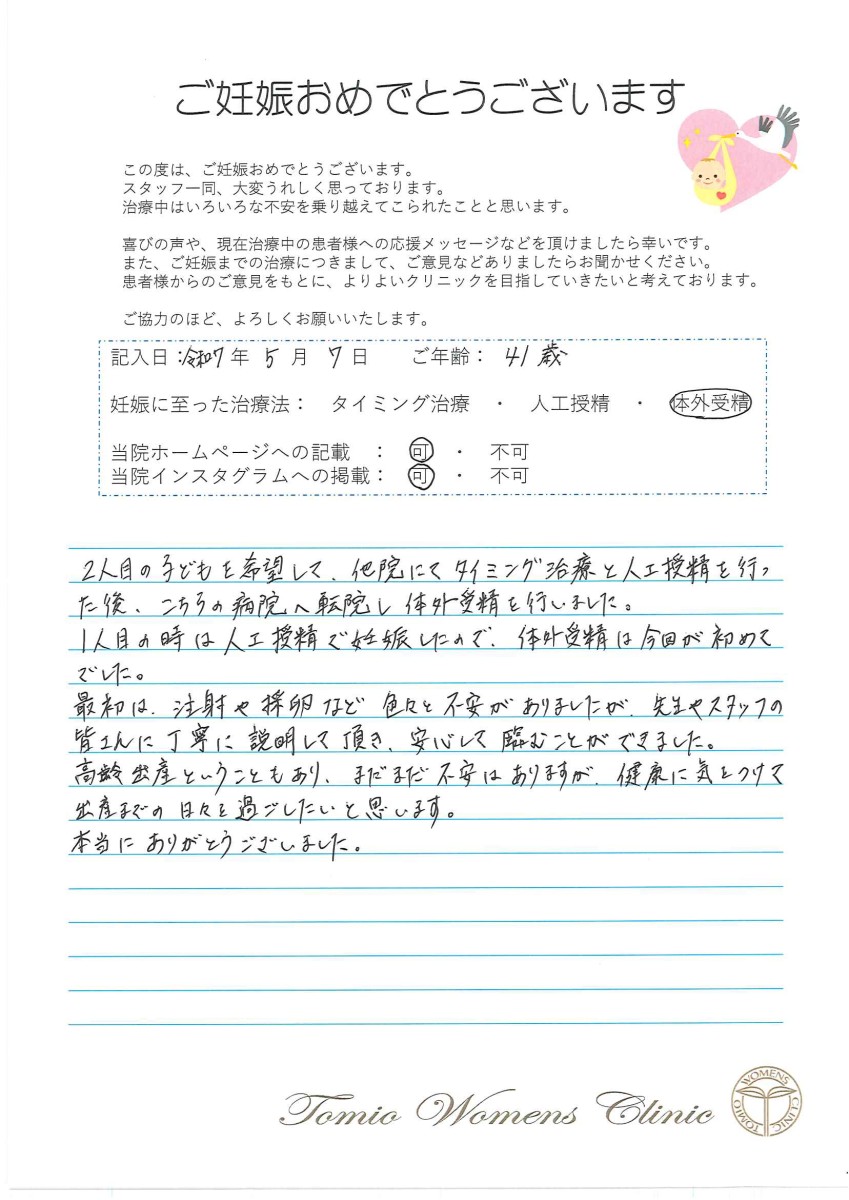 ご妊娠おめでとうございます
この度は、ご妊娠おめでとうございます。
スタッフ一同、大変うれしく思っております。
治療中はいろいろな不安を乗り越えてこられたことと思います。
喜びの声や、現在治療中の患者様への応援メッセージなどを頂けましたら幸いです。
また、ご妊娠までの治療につきまして、ご意見などありましたらお聞かせください。
患者様からのご意見をもとに、よりよいクリニックを目指していきたいと考えております。
ご協力のほど、よろしくお願いいたします。
記入日：令和7年 5月 7日 ご年齢： 41歳
妊娠に至った治療法： タイミング治療 ・ 人工授精 ・ 体外受精
当院ホームページへの記載 ： 可 ・ 不可
当院インスタグラムへの掲載： 可 ・ 不可
2人目の子どもを希望して、他院にてタイミング治療と人工授精を行っ
た後、こちらの病院へ転院し体外受精を行いました。
1人目の時は人工授精で妊娠したので、体外受精は今回が初めて
でした。
最初は、注射や採卵など色々と不安がありましたが、先生やスタッフの
皆さんに丁寧に説明して頂き、安心して臨むことができました。
高齢出産ということもあり、まだまだ不安はありますが、健康に気をつけて
出産までの日々を過ごしたいと思います。
本当にありがとうございました。
Tomio Womens Clinic
TOMIO WOMENS CLINIC